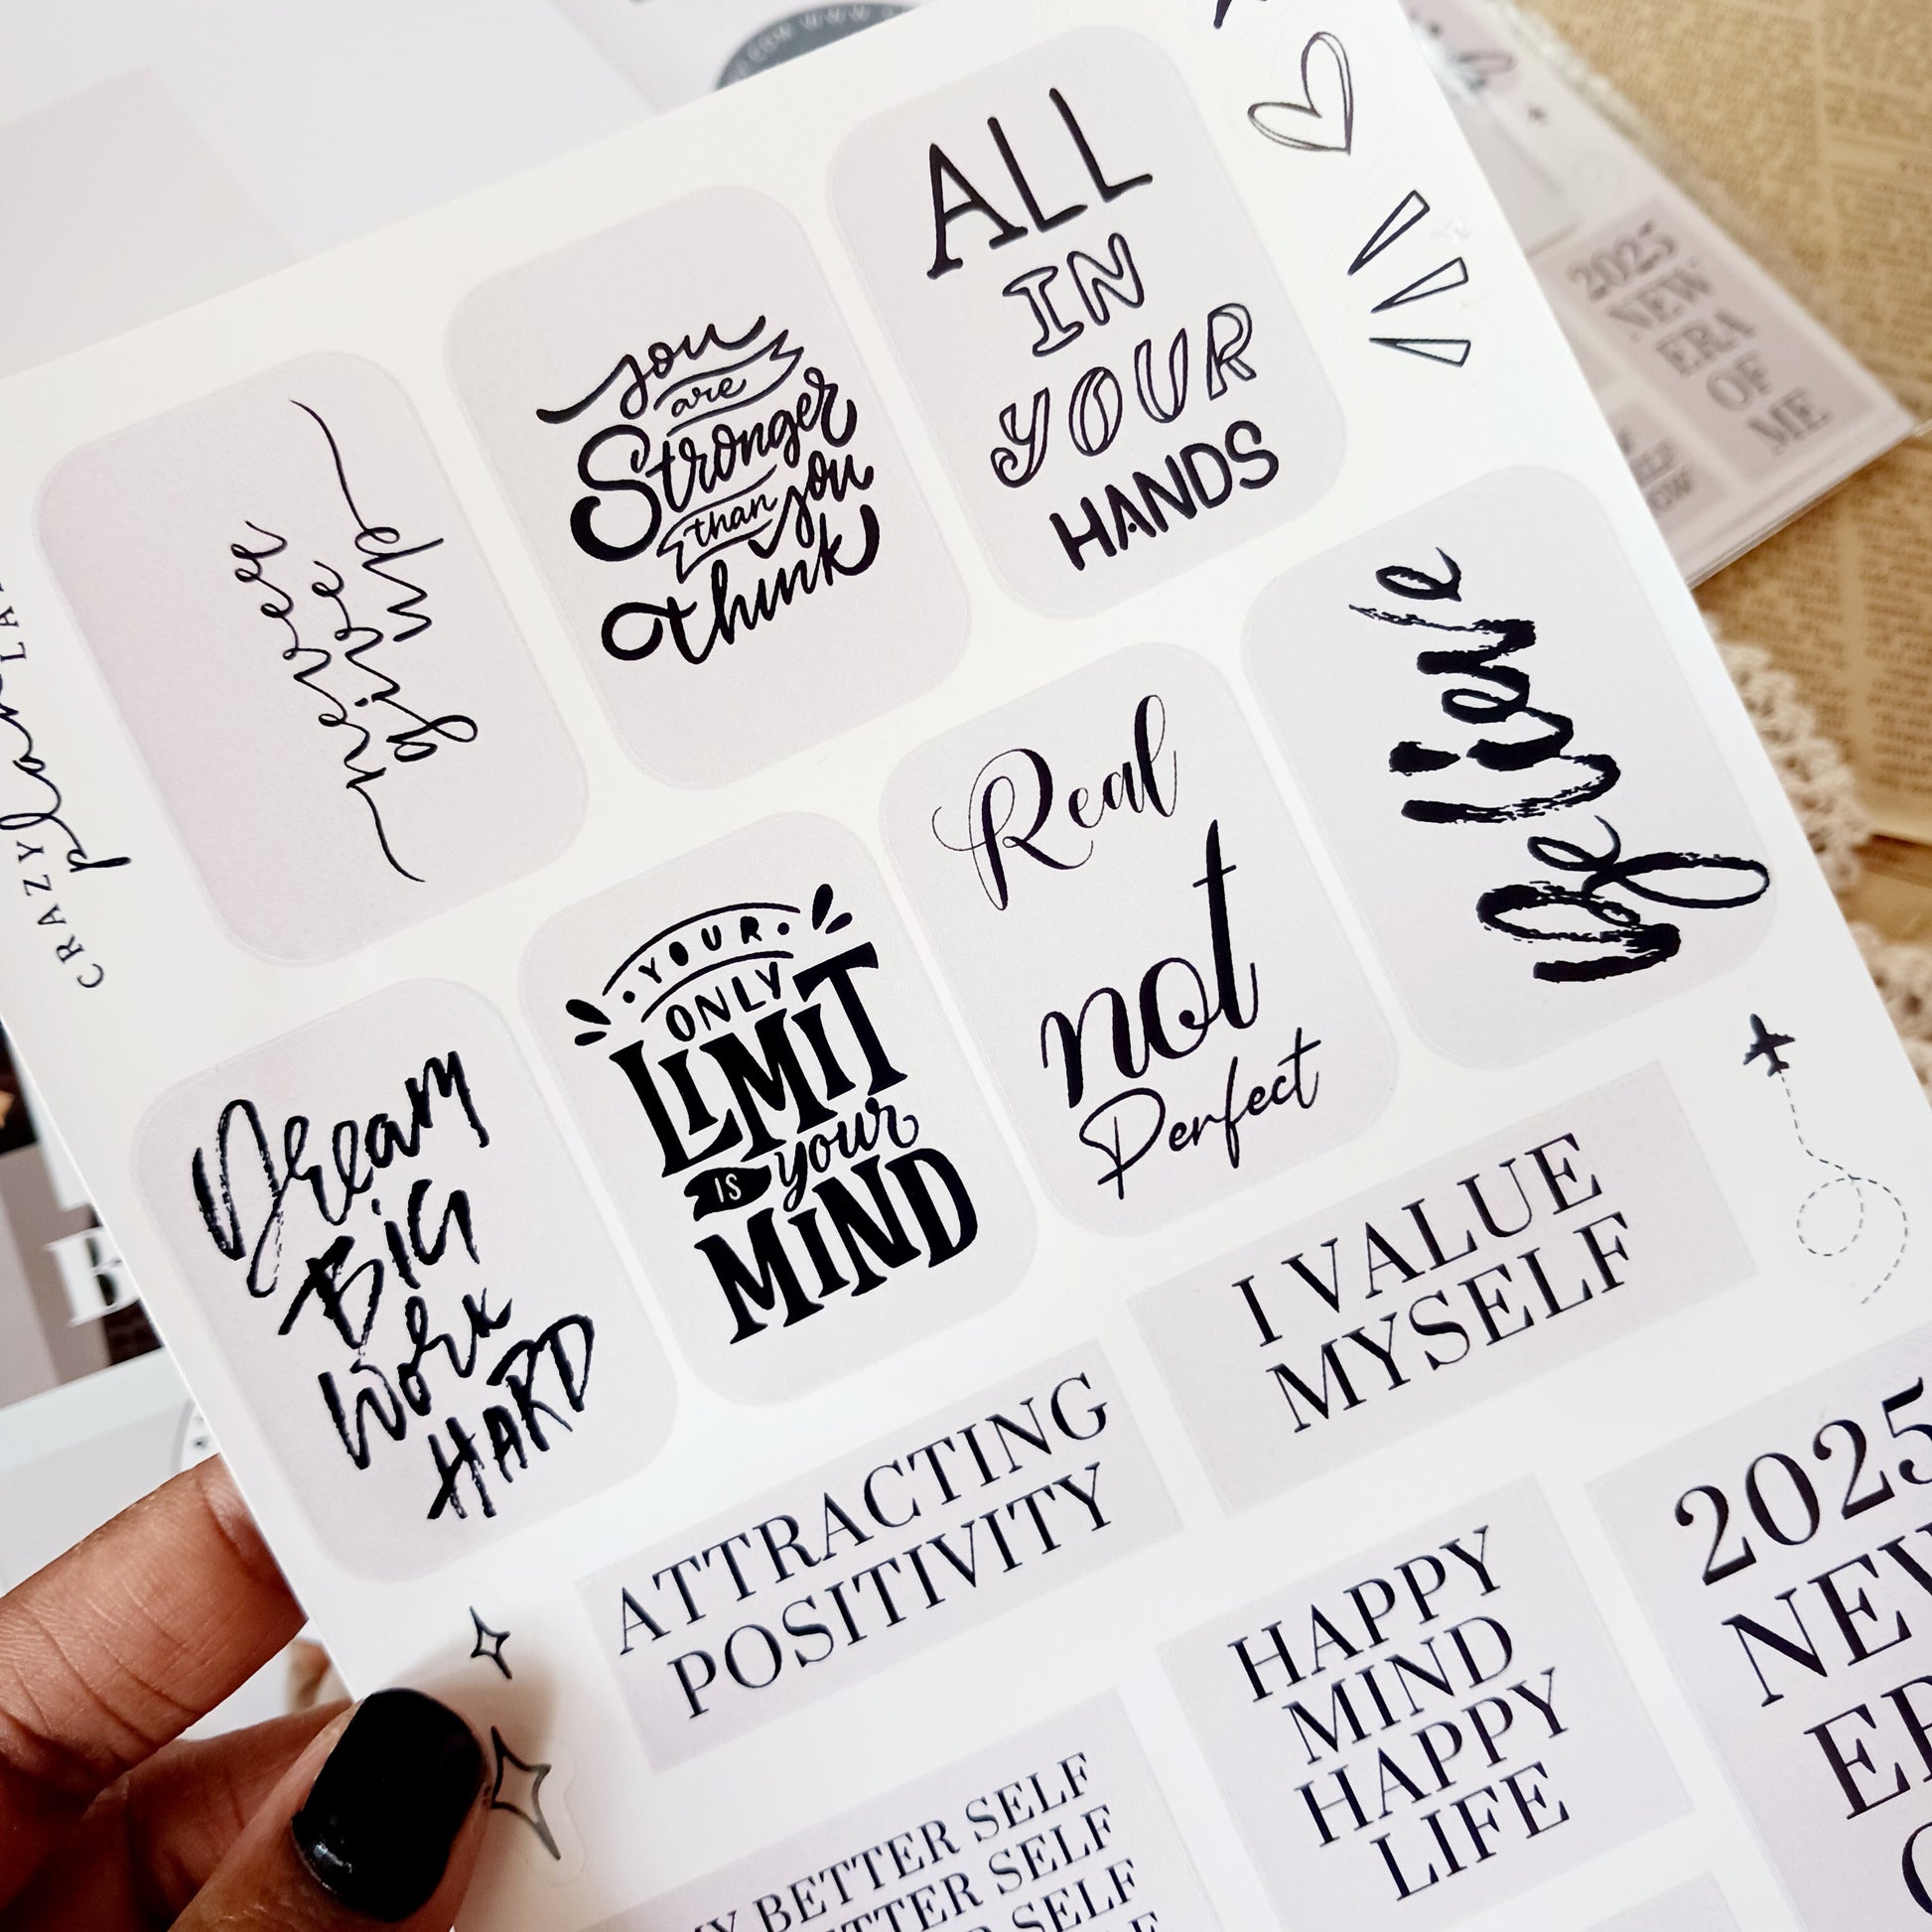 CRAZY
planLA
never
give
up
you
are
Stronger
than you
think
ALL
IN
YOUR
HANDS
Dream
BiG
Work
HARD
YOUR
ONLY
LIMIT
IS your
MIND
Real
not
Perfect
Believe
ATTRACTING
POSITIVITY
I VALUE
MYSELF
BETTER SELF
TTER SELF
SELF
HAPPY
MIND
HAPPY
LIFE
2025
NEW
ER
2025
NEW
ERA
OF
ME